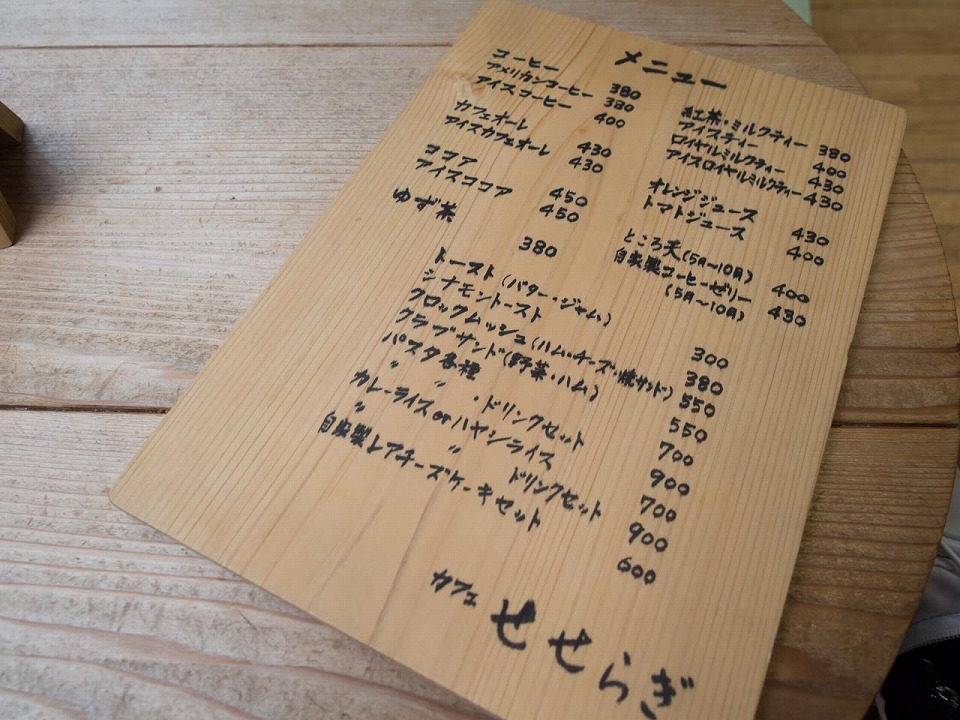 メニュー
コーヒー 380
アメリカンコーヒー 380
アイスコーヒー 400
カフェオーレ 430
アイスカフェオーレ 430
ココア 450
アイスココア 450
ゆず茶 380
紅茶・ミルクティー 380
アイスティー 400
ロイヤルミルクティー 430
アイスロイヤルミルクティー 430
オレンジジュース 430
トマトジュース 400
ところ天(5月〜10月) 400
自家製コーヒーゼリー 430
(5月〜10月)
トースト(バター・ジャム) 300
シナモントースト 380
クロックムッシュ(ハム・チーズ・焼サンド) 550
クラブサンド(野菜・ハム) 550
パスタ各種 700
〃 〃 ・ドリンクセット 900
カレーライスorハヤシライス 700
〃 〃 ドリンクセット 900
自家製レアチーズケーキセット 600
カフェ せせらぎ